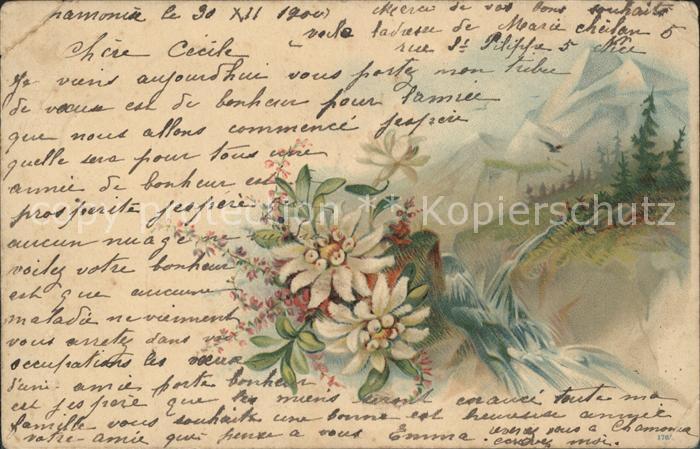 Chamonix le 30 XII 1900
Merci de vos bons souhaits
voila ladresse de Marie
rue St 5 Nice
Chère Cécile
Je viens aujourdhui vous portez mon tribu
de vœux est de bonheur pour lannee
que nous allons commencé jespère
quelle sera pour tous une
année de bonheur est
prospérité jespère
aucun nuage ne
voilez votre bonheur
est que aucune
maladie ne viennent
vous arretez dans vos
occupations les vœux
d'une amie porte bonheur
est jespère que les miens seront exaucé toute ma
famille vous souhaite une bonne est heureuse année
votre amie qui pense a vous Emma venez vous a Chamonix
moi.
copy protection ** Kopierschutz